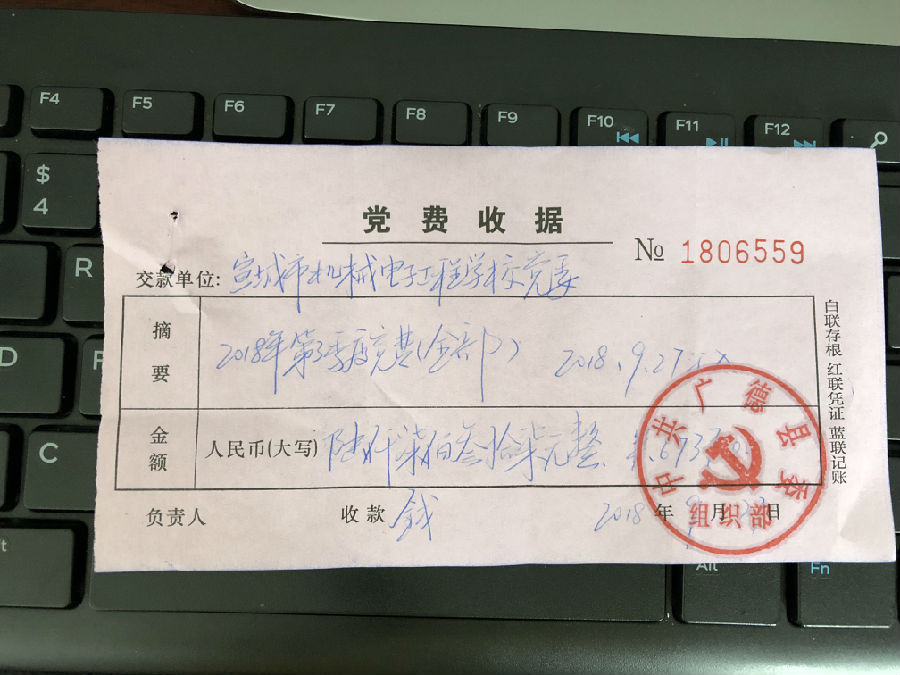 F4 F5 F6 F7 F8 F9 F10 F11 F12
$
4
R
D
F
党费收据
№ 1806559
交款单位: 宣城市机械电子工程学校党委
摘要 2018年第3季度党费(全部) 2018.9.27
金额 人民币(大写) 陆仟柒佰叁拾柒元整 ¥6737
负责人 收款 钱 2018年9月27日
白联存根 红联凭证 蓝联记账
中共广德县委
组织部
Alt Fn